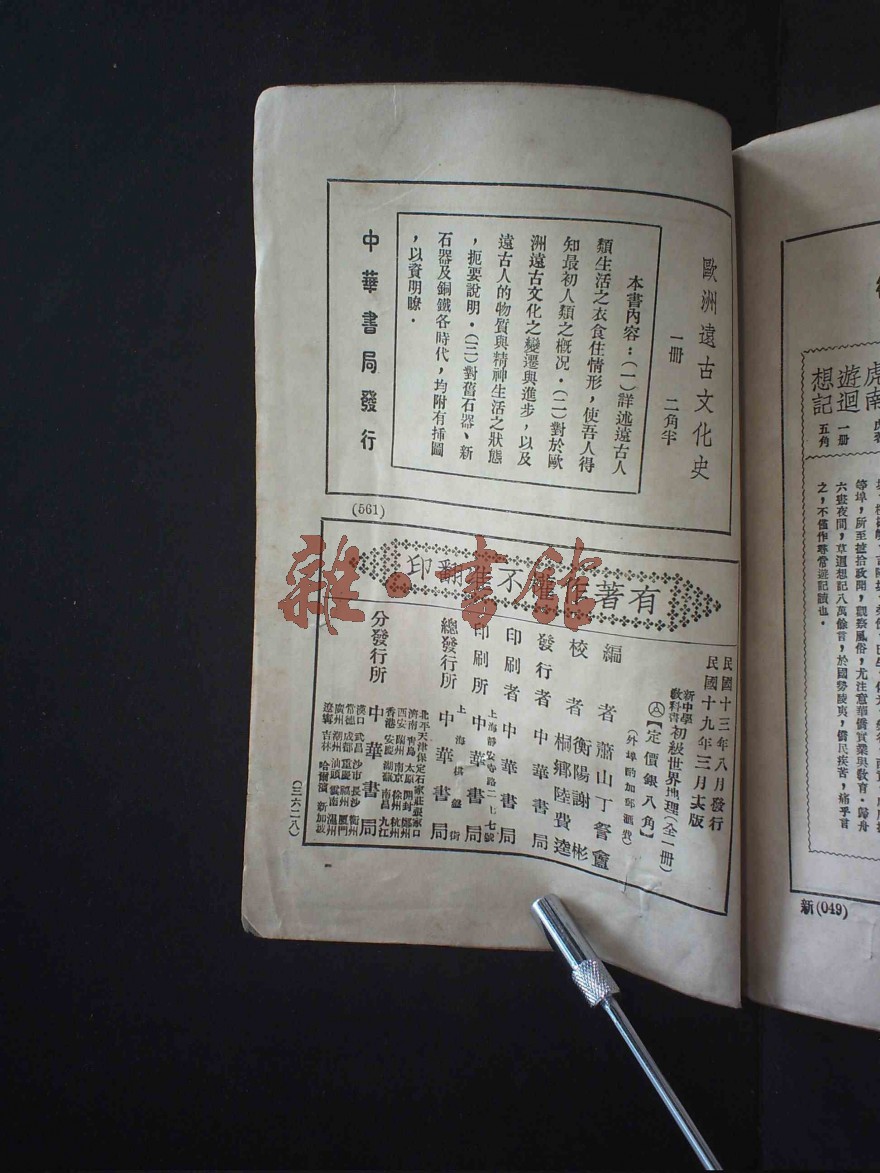 歐洲遠古文化史
一册　二角半
本書內容：（一）詳述遠古人
類生活之衣食住情形，使吾人得
知最初人類之概况．（二）對於歐
洲遠古文化之變遷與進步，以及
遠古人的物質與精神生活之狀態
，扼要說明．（三）對舊石器、新
石器及銅鐵各時代，均附有插圖
，以資明瞭．
中華書局發行
(561)
有著作權不准翻印
民國十三年八月發行
民國十九年三月 版
新中學
教科書 初級世界地理（全一册）
【定價銀八角】
（外埠酌加郵滙費）
編者 蕭山丁詧盦
校者 衡陽謝 彬
桐鄉陸費逵
發行者 中華書局
印刷者 中華書局
上海靜安寺路二七七號
印刷所 中華書局
上海棋盤街
總發行所 中華書局
分發行所 中華書局
北平 天津 保定 石家莊 張家口
濟南 青島 太原 開封 鄭州
西安 南京 徐州 杭州
香港 安慶 蕪湖 南昌 九江
漢口 武昌 沙市 長沙 衡州
常德 成都 重慶 福州 廈門
廣州 潮州 汕頭 雲南 溫州
遼寧 吉林 哈爾濱 新加坡
(三六二八)
雜·書館
遊迴
想記
一册
五角
等埠，所至 拾政聞，觀察風俗，尤注意華僑實業與教育．歸舟
六 夜間，草迴想記八萬餘言，於國勢陵夷，僑民疾苦，痛乎言
之，不僅作尋常遊記讀也．
新(049)